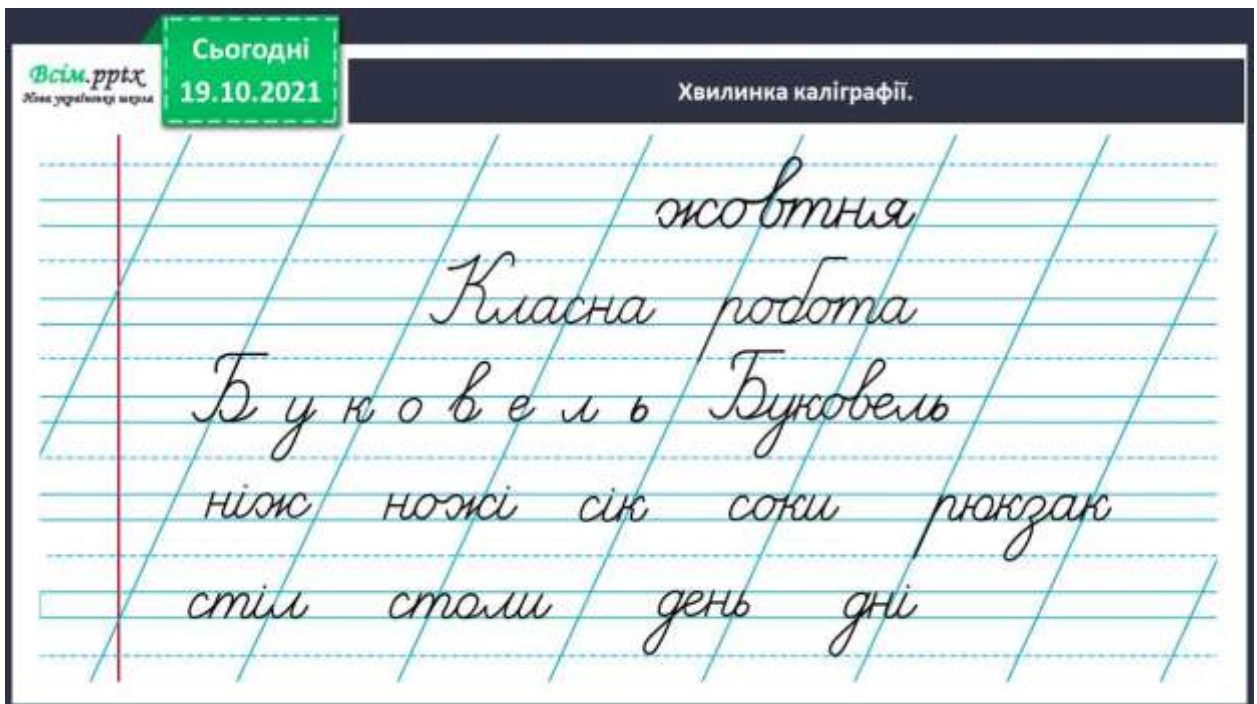 Сьогодні
Всім.pptx
Нова українська школа
19.10.2021
Хвилинка каліграфії.
жовтня
Класна робота
Б у к о в е л ь Буковель
ніж ножі сік соки рюкзак
стіл столи день дні